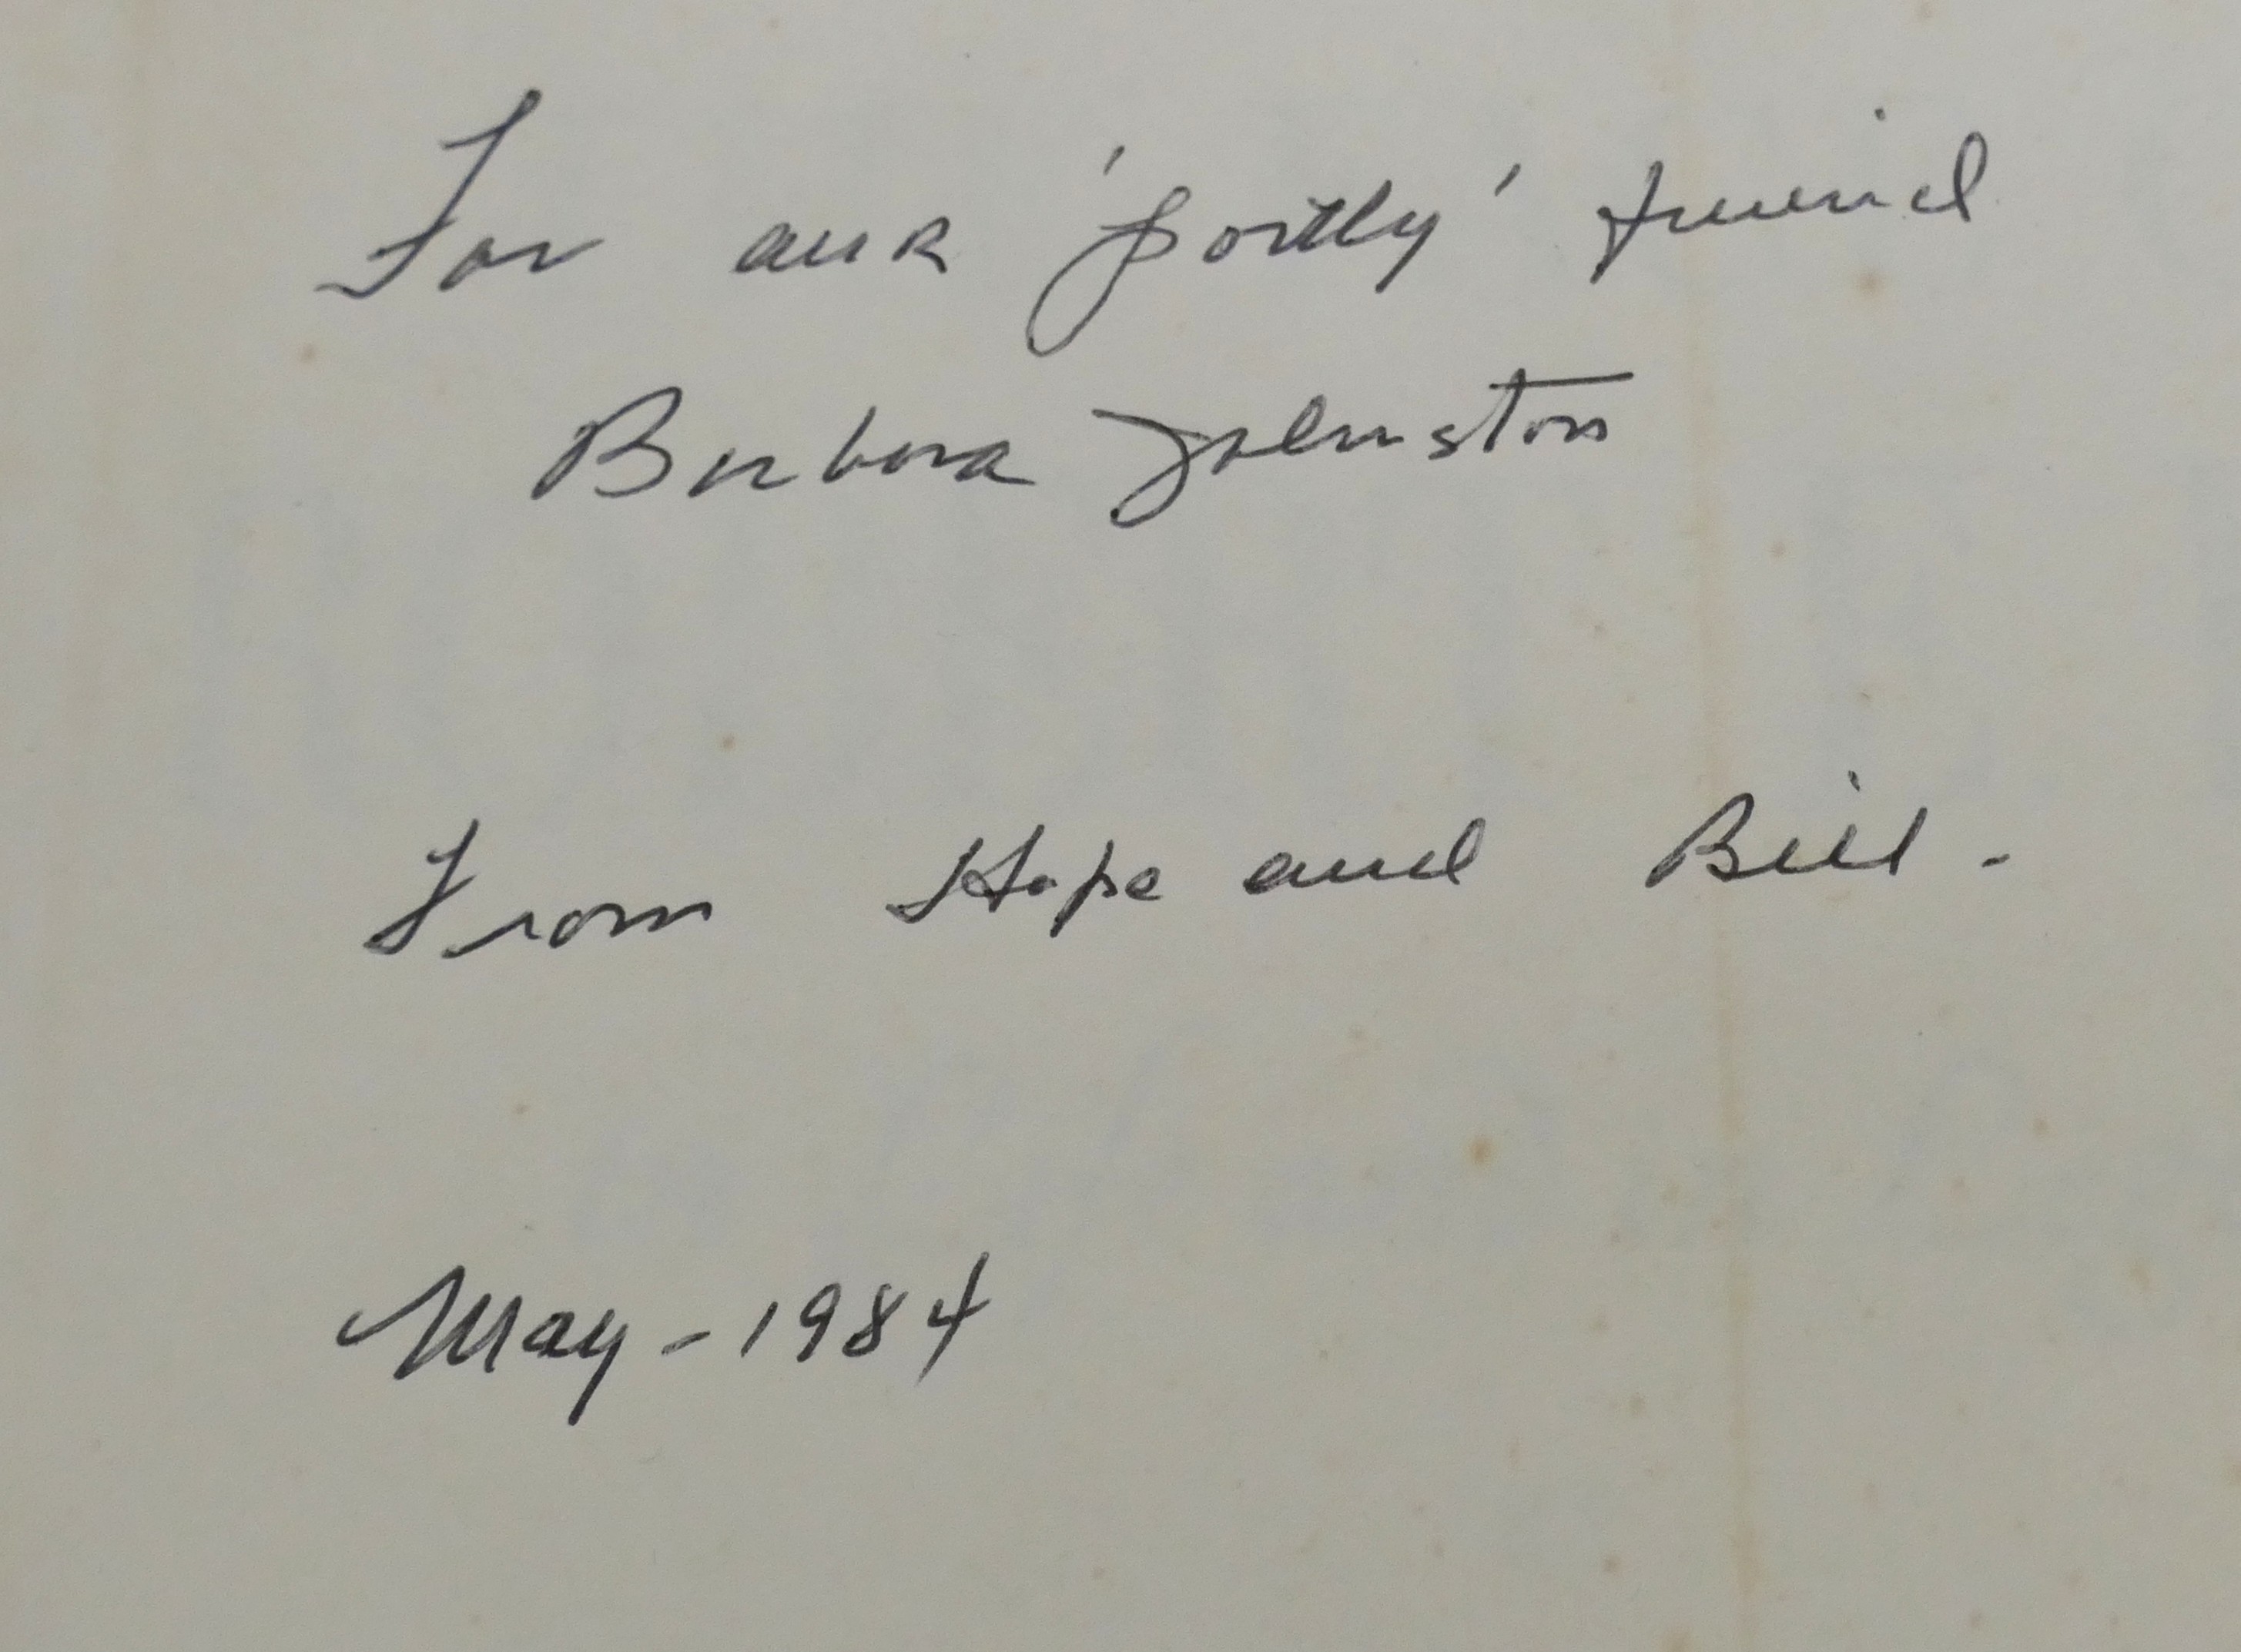 For our 'portly' friend
Barbara Johnston
From Hope and Bill.
May - 1984